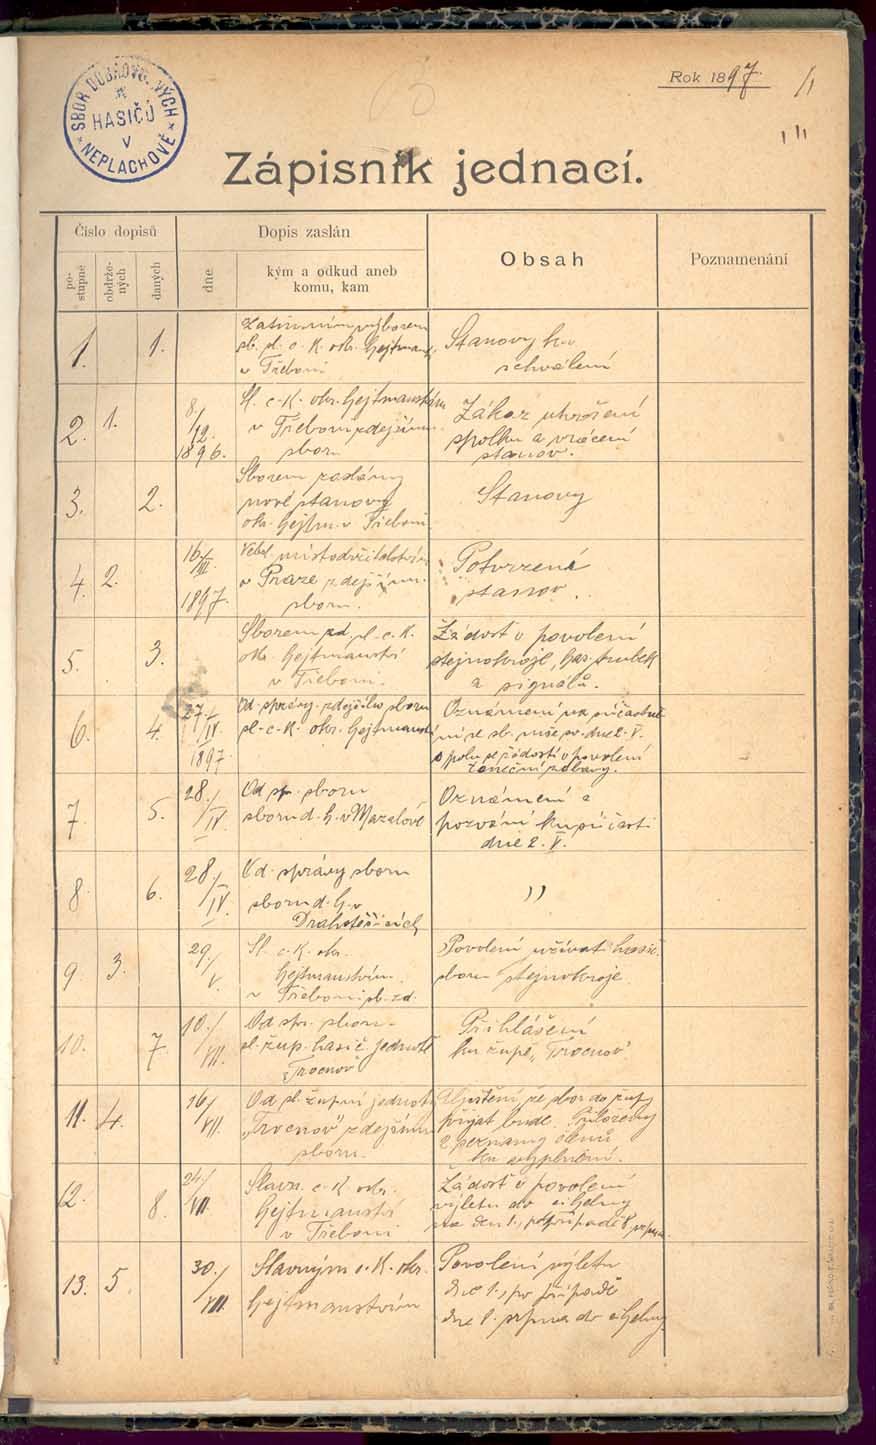 SBOR DOBROVOLNÝCH
HASIČŮ
V
NEPLACHOVĚ
Rok 1897.
Zápisník jednací.
Číslo dopisů
Dopis zaslán
Obsah
Poznamenání
po-
stupné
obdrže-
ných
daných
dne
kým a odkud aneb
komu, kam
1. 1. výborem
sl. c. K. okr. Hejtman.
v Třeboni
Stanovy
schválení
2. 1. 8./12. 1896.
Sl. c. K. okr. Hejtmanstvím
v Třeboni zdejšímu
sboru
Zákaz
spolku a vrácení
stanov.
3. 2. Sborem zaslány
nové stanovy
okr. Hejtm. v Třeboni
Stanovy
4. 2. 16./III. 1897.
místodržitelstvím
v Praze zdejšímu
sboru.
Potvrzená
stanov.
5. 3. Sborem zd. sl. c. K.
okr. Hejtmanství
v Třeboni.
Žádost o povolení
stejnokroje, has. trubek
a signálů.
6. 4. 27./IV. 1897.
Od správy zdejšího sboru
sl. c. K. okr. Hejtmanství
Oznámení
dne 2. V.
spolu se žádostí o povolení
taneční zábavy.
7 5. 28./IV.
Od sp. sboru
sboru d. h. v Mazelově
Oznámení a
pozvání ku účasti
dne 2. V.
8 6. 28./IV.
Od správy sboru
sboru d. h. v
Drahotěšicích
"
9 3. 29/V.
Sl. c. K. okr.
Hejtmanstvím
v Třeboni sb. zd.
Povolení užívat hasič.
sboru stejnokroje.
10. 7. 10./VII.
Od spr. sboru
sl. žup. hasič. jednotě
„Trocnov“
Přihlášení
ku župě „Trocnov“
11. 4. 16/VII.
Od sl. župní jednoty
„Trocnov“ zdejšímu
sboru.
Ujištění že sbor do župy
přijat bude. Přiloženy
2 seznamy členů
ku vyplnění.
12. 8. 24/VII.
Slavn. c. K. okr.
Hejtmanství
v Třeboni
Žádost o povolení
výletu do cihelny
na den 1., po případě 8. srpna.
13. 5. 30./VII.
Slavným c. K. okr.
Hejtmanstvím
Povolení výletu
dne 1., po případě
dne 8. srpna do cihelny.